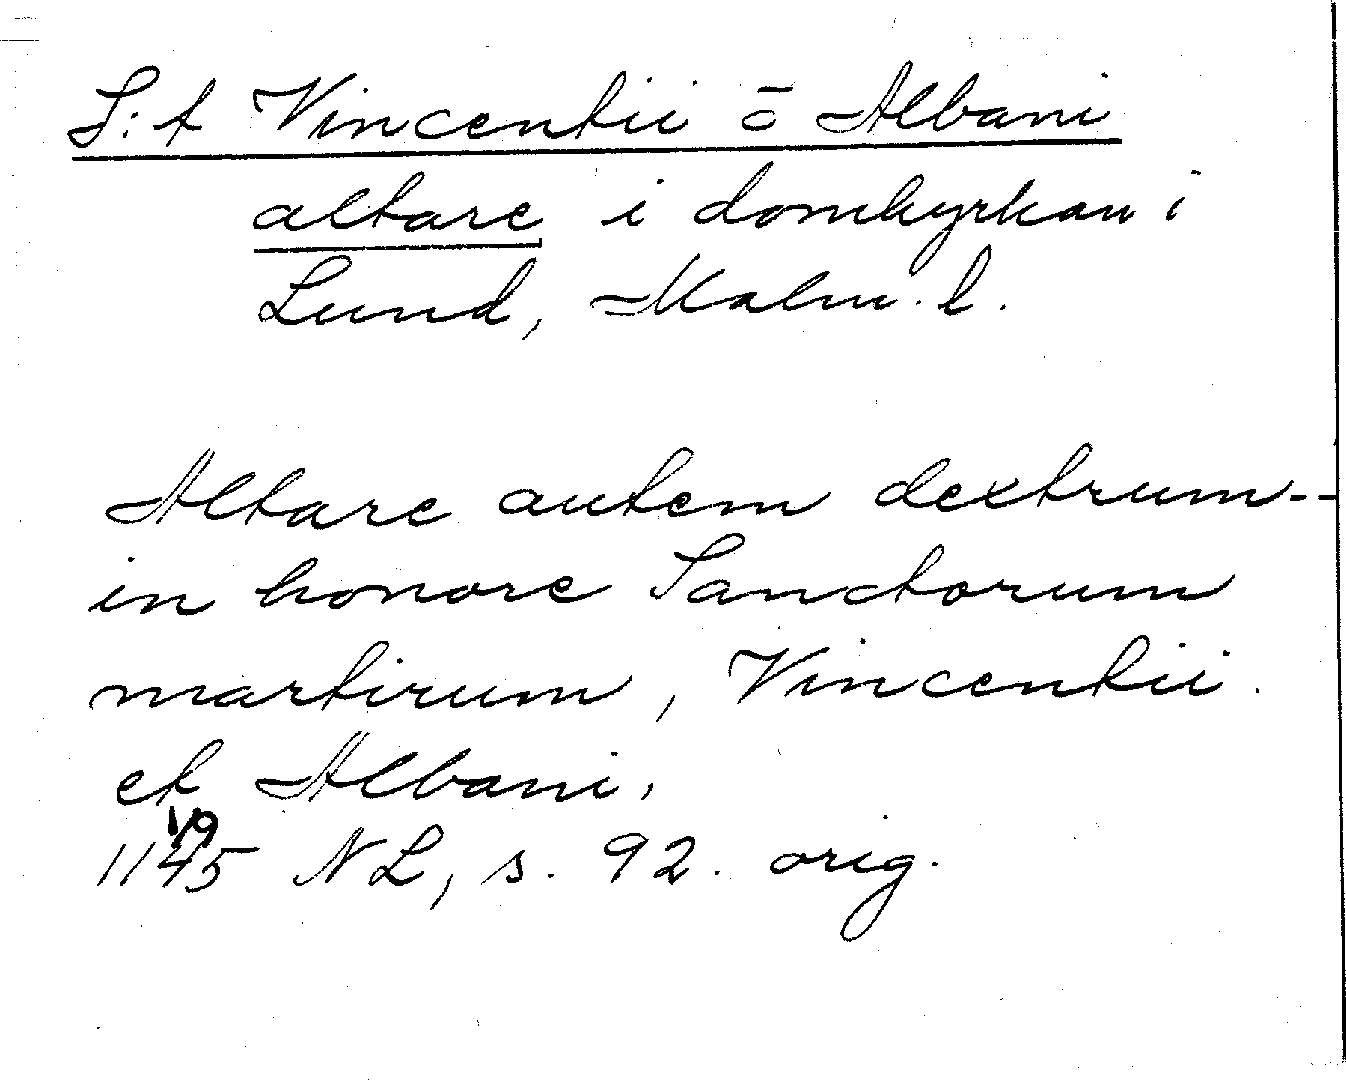 S:t Vincentii o Albani
altare i domkyrkan i
Lund, Malm. l.
Altare autem dextrum--
in honore Sanctorum
martirum, Vincentii
et Albani,
1/9
1145 NL, s. 92. orig.